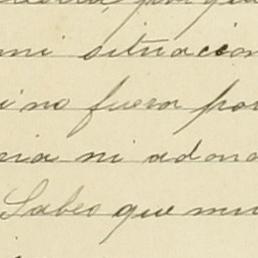 por que
mi situacion
i no fuera por
ni adond
Sabes que mu